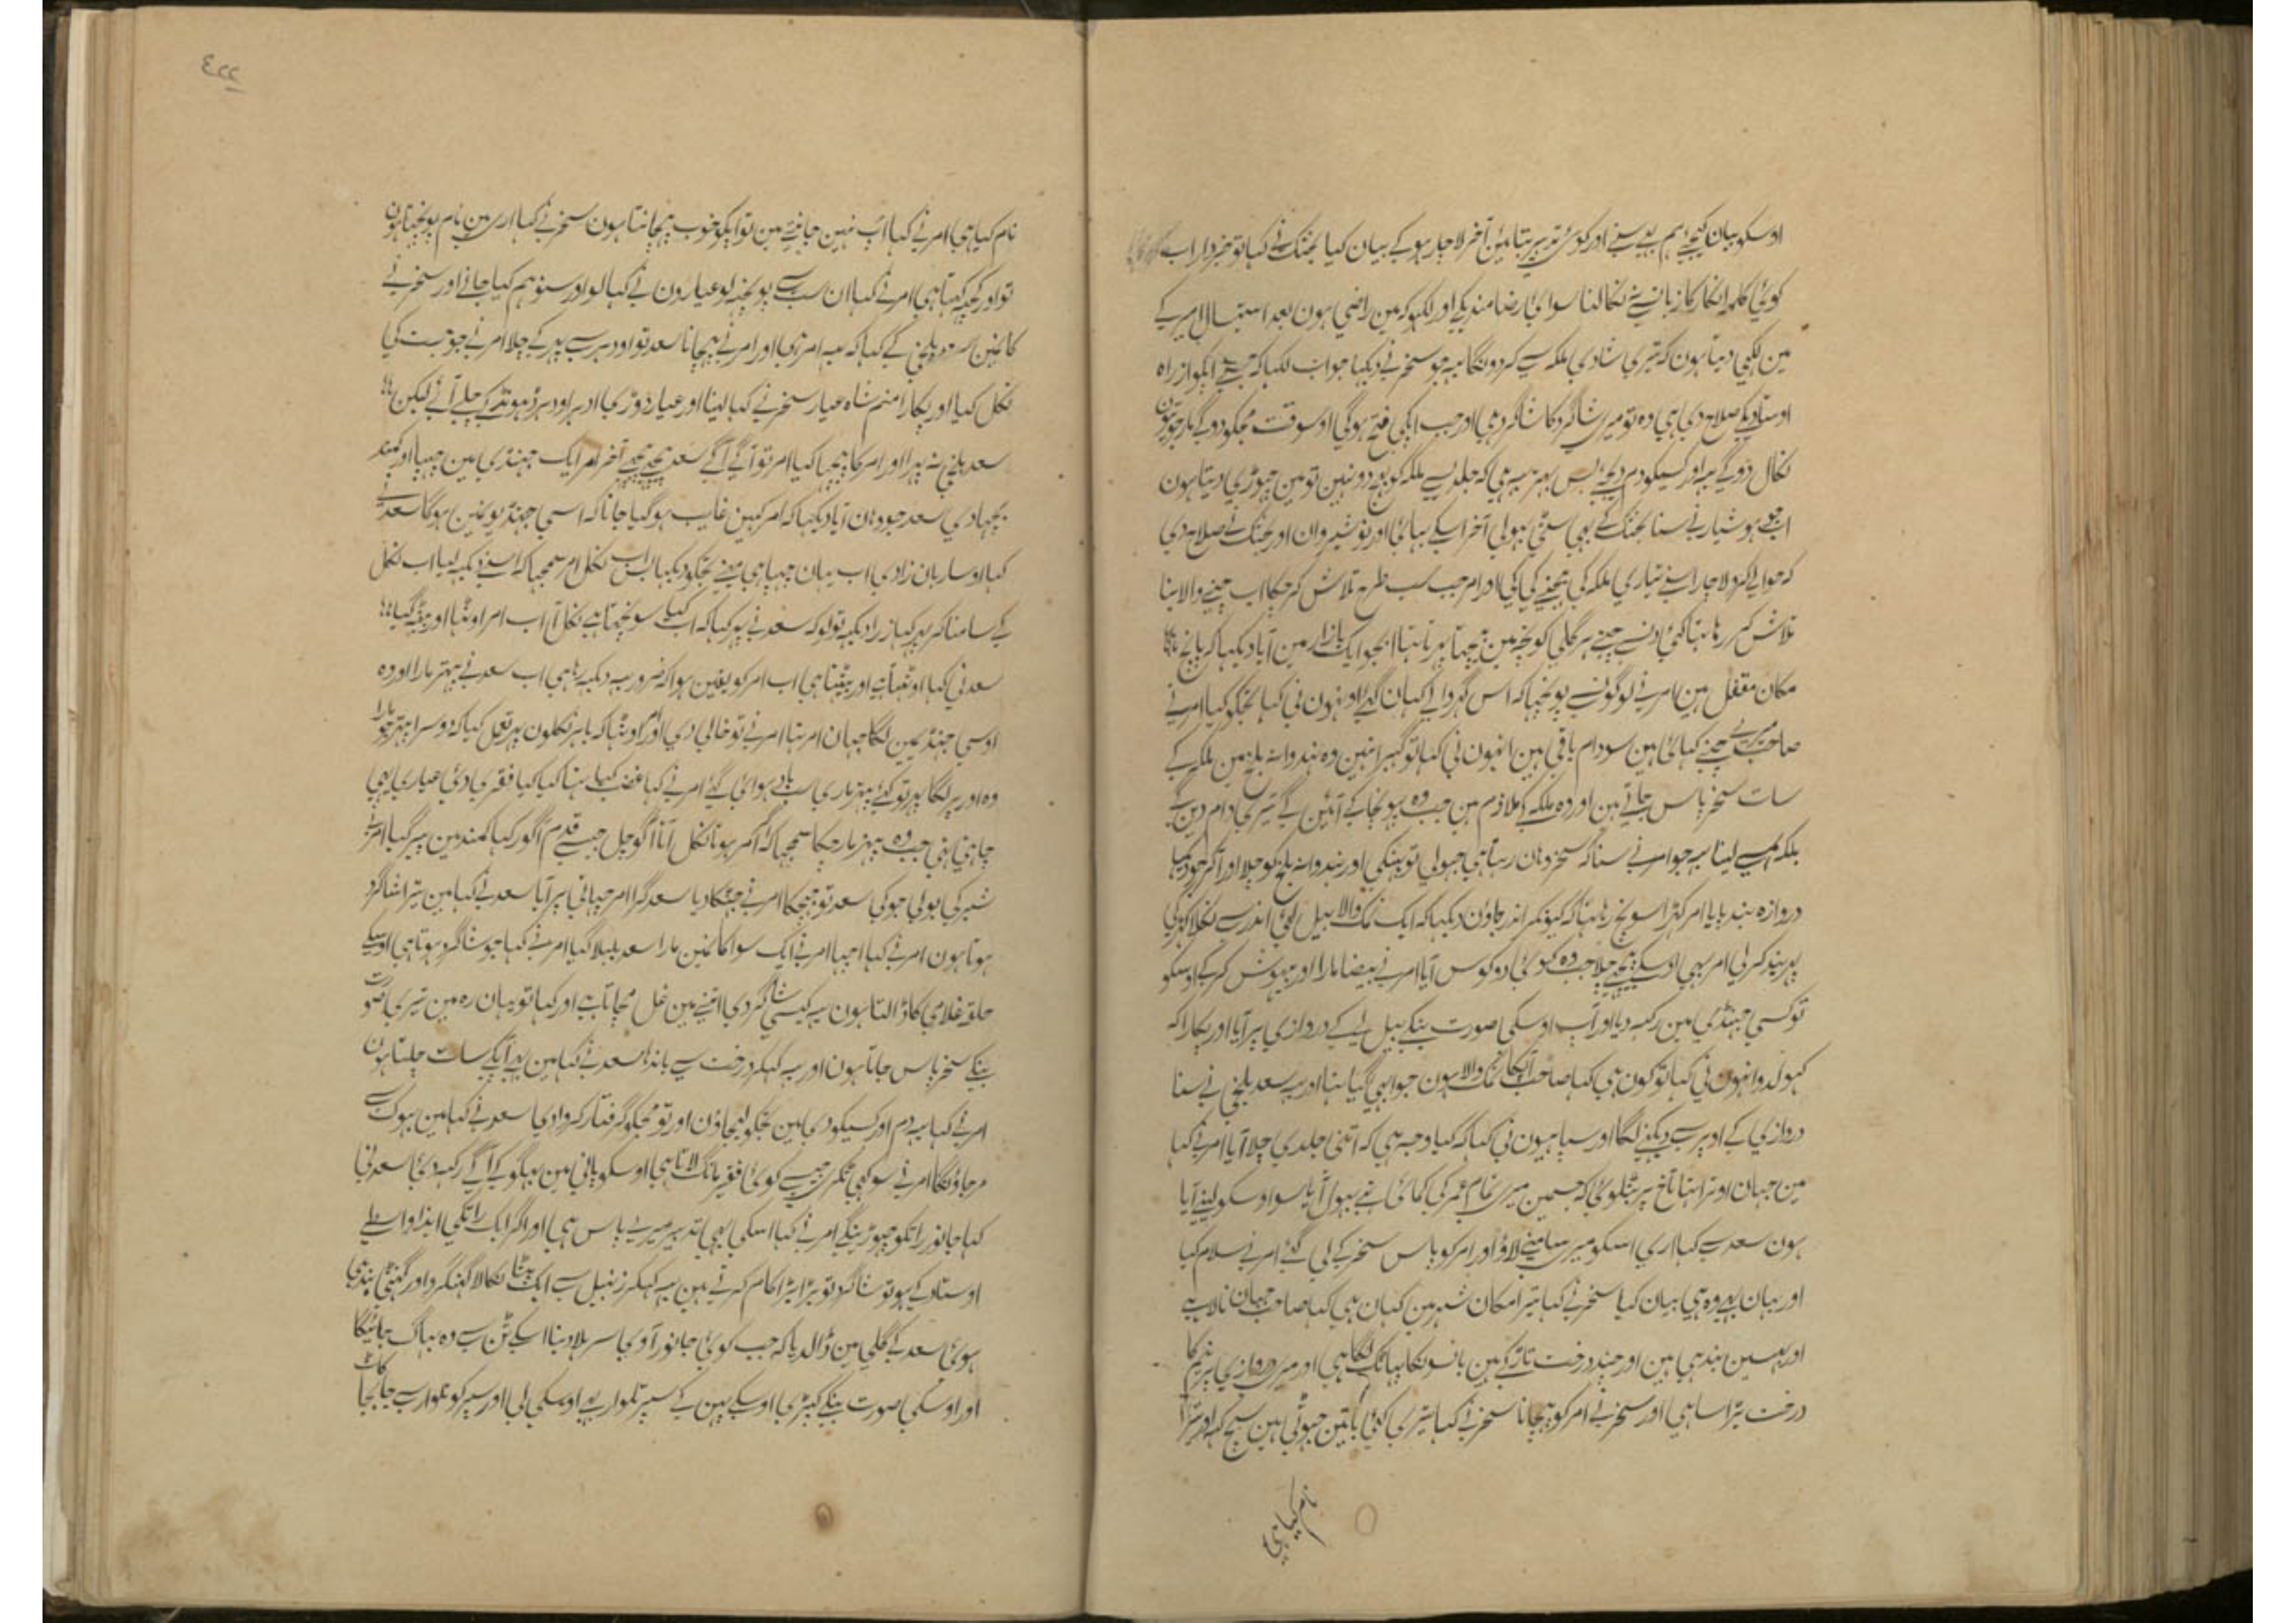 اوسکو بیان کیجیے ہم بہی سنے اور کوئی تدبیر بتائین آخر لاچار ہو کے بیان کیا بختک نے کہا تو خبردار اب
کوئی کلمہ انکار کا زبان سے نہ نکالنا سوای رضامندیکے اور لکہو کہ مین راضی ہون بعد استیصال امیر کے
مین لکہی دیتا ہون کہ تیری شادی ملکہ سے کردونگا یہ جو سخر نے دیکہا جواب لکہا کہ جسنے آپکو از راہ
اوستادیکے صلاح دی ہی وہ تو میری شاگرد کا شاگرد ہی اور جب آپکی فتح ہوگی اوسوقت مجکو دوگے یا
نکال دوگے یہ اور کسیکو دم دیجئے بس بہتر یہ ہی کہ جلدی سے ملکہ کو بہیجدو نہین تو مین چہوڑی دیتا ہون
ابجو ہوشیار نے سنا بختک کے بہی سٹی بہولی آخر اسکے بہائی اور نوشیروان اور بختک نے صلاح دی
کہ حوالے کردو لاچار اسنے تیاری ملکہ کی بہیجنے کی کی اور امر جب سب طرح تلاش کر چکا اب چنے والا بنا
تلاش کر رہا تہا کئی دن سے چنے ہر گلی کوچہ مین بیچتا پہرتا تہا ابجو ایک بازار مین آیا دیکہا کہ پانچ
مکان مقفل ہین امر نے لوگونسے پوچہا کہ اس گہر والے کہان گئے اونہون نی کہا تجکو کیا امر نے
صاحب میرے چنے کہائی ہین سو دام باقی ہین انہون نی کہا تو گہبرا نہین وہ بندوانہ بلخ مین ملکہ کے
سات سخر پاس جاتے ہین اور وہ ملکہ کے ملازم ہین جب وہ پہونچا کے آئین گے تیری دام دین گے
بلکہ ہمسے لینا یہ جو امر نے سنا کہ سخر وہان رہتا ہی جہولی تو پہینکی اور بندوانہ بلخ کو چلا اور آکر جو دیکہا
دروازہ بند پایا امر کہڑا سونچ رہا تہا کہ کیونکر اندر جاؤن دیکہا کہ ایک نمک والا بیل لئی اندر سے نکلا کہڑکی
پہر بند کرلی امر بہی اوسکے پیچہے چلا جب وہ کوئی دو کوس آیا امر نے بیضا مارا اور بیہوش کر کے اوسکو
تو کسی جہنڈی مین رکہدیا اور آپ اوسکی صورت بنکے بیل لیے کے دروازی پر آیا اور پکارا کہ
کہولدو انہون نی کہا تو کون ہی کہا صاحب آپکا نمک والا ہون جو ابہی گیا تہا اور یہ سعد بلخی نے سنا
دروازی کے اوپر سے دیکہنے لگا اور سپاہیون نی کہا کہ کیا وجہ ہی کہ اتنی جلدی چلا آیا امر نے کہا
مین جہان اوترا تہا تاخ پر بٹلوئی کہ جسمین میری تمام عمر کی کمائی ہے بہول آیا سو اوسکو لینے آیا
ہون سعد نے کہا اری اسکو میری سامہنے لاؤ اور امر کو پاس سخر کے لی گئے امر نے سلام کیا
اور یہان بہی وہ ہی بیان کیا سخر نے کہا تیرا مکان شہر مین کہان ہی کہا صاحب جہان نالا ہے
اور بہینسین بندہی ہین اور چند درخت تاڑ کے ہین بانسونکا پہاٹک لگا ہی اور میری دروازی پر نیم کا
درخت بڑا سا ہی اور سخر نے امر کو پہچانا سخر نے کہا تیری کئی باتین جہوٹی ہین سچ کہہ اور تیرا
نام کیا ہی
٤٢٢
نام کیا ہی امر نے کہا آپ نہین جانتے مین تو آپکو خوب پہچانتا ہون سخر نے کہا اری مین نام پوچہتا ہون
تو اور کچہہ کہتا ہی امر نے کہا ان سب سے پوچہہ لو عیارون نے کہا لو اور سنو ہم کیا جانے اور سخر نے
کہ یہ امر ہی اور امر نے پہچانا سعد تو اودہر سے پہر کے چلا امر نے جو جست کی
نکل گیا اور پکارا منم شاہ عیار سخر نے کہا لینا اور عیار دوڑی ادہر اودہر ڈہونڈکے چلے آئے لیکن
سعد بلخی نہ پہرا اور امر کا پیچہا کیا امر تو آگے آگے سعد پیچہے پیچہے آخر امر ایک جہنڈی مین چہپا اور کمند
بچہادی سعد جو وہان آیا دیکہا کہ امر کہین غایب ہو گیا جانا کہ اسی جہنڈیونمین ہوگا سعد نے
کہا او ساربان زادی اب یہان چہپا ہی مینے تجکو دیکہا بس اب نکل امر سمجہا کہ اسنے دیکہہ لیا اب نکل
کے سامنا کر پہر کہا ذرا دیکہہ تو لو کہ سعد نے پہر کہا کہ اب کیا سونچتا ہے نکل آ اب امر اوٹہا اور بیٹہہ گیا
سعد نی کہا اوٹہتا ہے اور بیٹہتا ہی اب امر کو یقین ہوا کہ ضرور یہ دیکہہ رہا ہی اب سعد نے پتہر مارا اور وہ
اوسی جہنڈیمین لگا جہان امر تہا امر نے تو خالی دی اور اوٹہا کہ باہر نکلون پہر تعمل کیا کہ دوسرا پتہر جو مارا
وہ اور پر لگا پہر تو کئی پتہر ماری سب باد ہوائی گئے امر نے کہا غضب کیا تہا کیا کیا فقری دئی عیاری
چاہئی تہی جب وہ پتہر مار چکا سمجہا کہ اگر ہوتا نکل آتا آگو چل جیسے قدم آگو رکہا کمند مین پیر گیا امر نے
شیر کی بولی جو کی سعد تو جہجکا امر نے جہٹکا دیا سعد گرا امر چہاتی پر آیا سعد نے کہا مین تیرا شاگرد
ہوتا ہون امر نے کہا اچہا امر نے ایک سوا کانمین مارا سعد بلبلا گیا امر نے کہا جو شاگرد ہوتا ہی اوسکے
حلقہ غلامی کا ڈالتا ہون یہ کیسی شاگردی اتنے مین غل مچاتا ہے اور کہا تو یہان رہ مین تیری صورت
بنکے سخر پاس جاتا ہون اور یہ کہکر درخت سے باندہا سعد نے کہا مین بہی آپکے سات چلتا ہون
امر نے کہا یہ دم اور کسیکو دی مین تجکو لیجاؤن اور تو مجکو گرفتار کروادی سعد نے کہا مین بہوک سے
مر جاؤنگا امر نے سوکہی ٹکری جیسے کوئی فقیر مانگ لاتا ہی اوسکو پانی مین بہگو کے آگے رکہدئی سعد نی
کہا جانور راتکو چہوڑینگے امر نے کہا اسکی بہی تدبیر میرے پاس ہی اور اگر ایک راتکی ایذا واسطے
اوستاد کے ہو تو شاگرد تو بڑا بڑا کام کرتے ہین یہ کہکر زنبیل سے ایک پٹا نکالا گہنگرو اور گہنٹی بندہی
ہوئی سعد کے گلے مین ڈالدیا کہ جب کوئی جانور آوی سر ہلا دینا اسکے ٹن سے وہ بہاگ جائیگا
اور اوسکی صورت بنکے کپڑی اوسکے پہن کے سپر تلوار بہی اوسکی لی اور سپر کو تلوار سے جابجا کاٹ